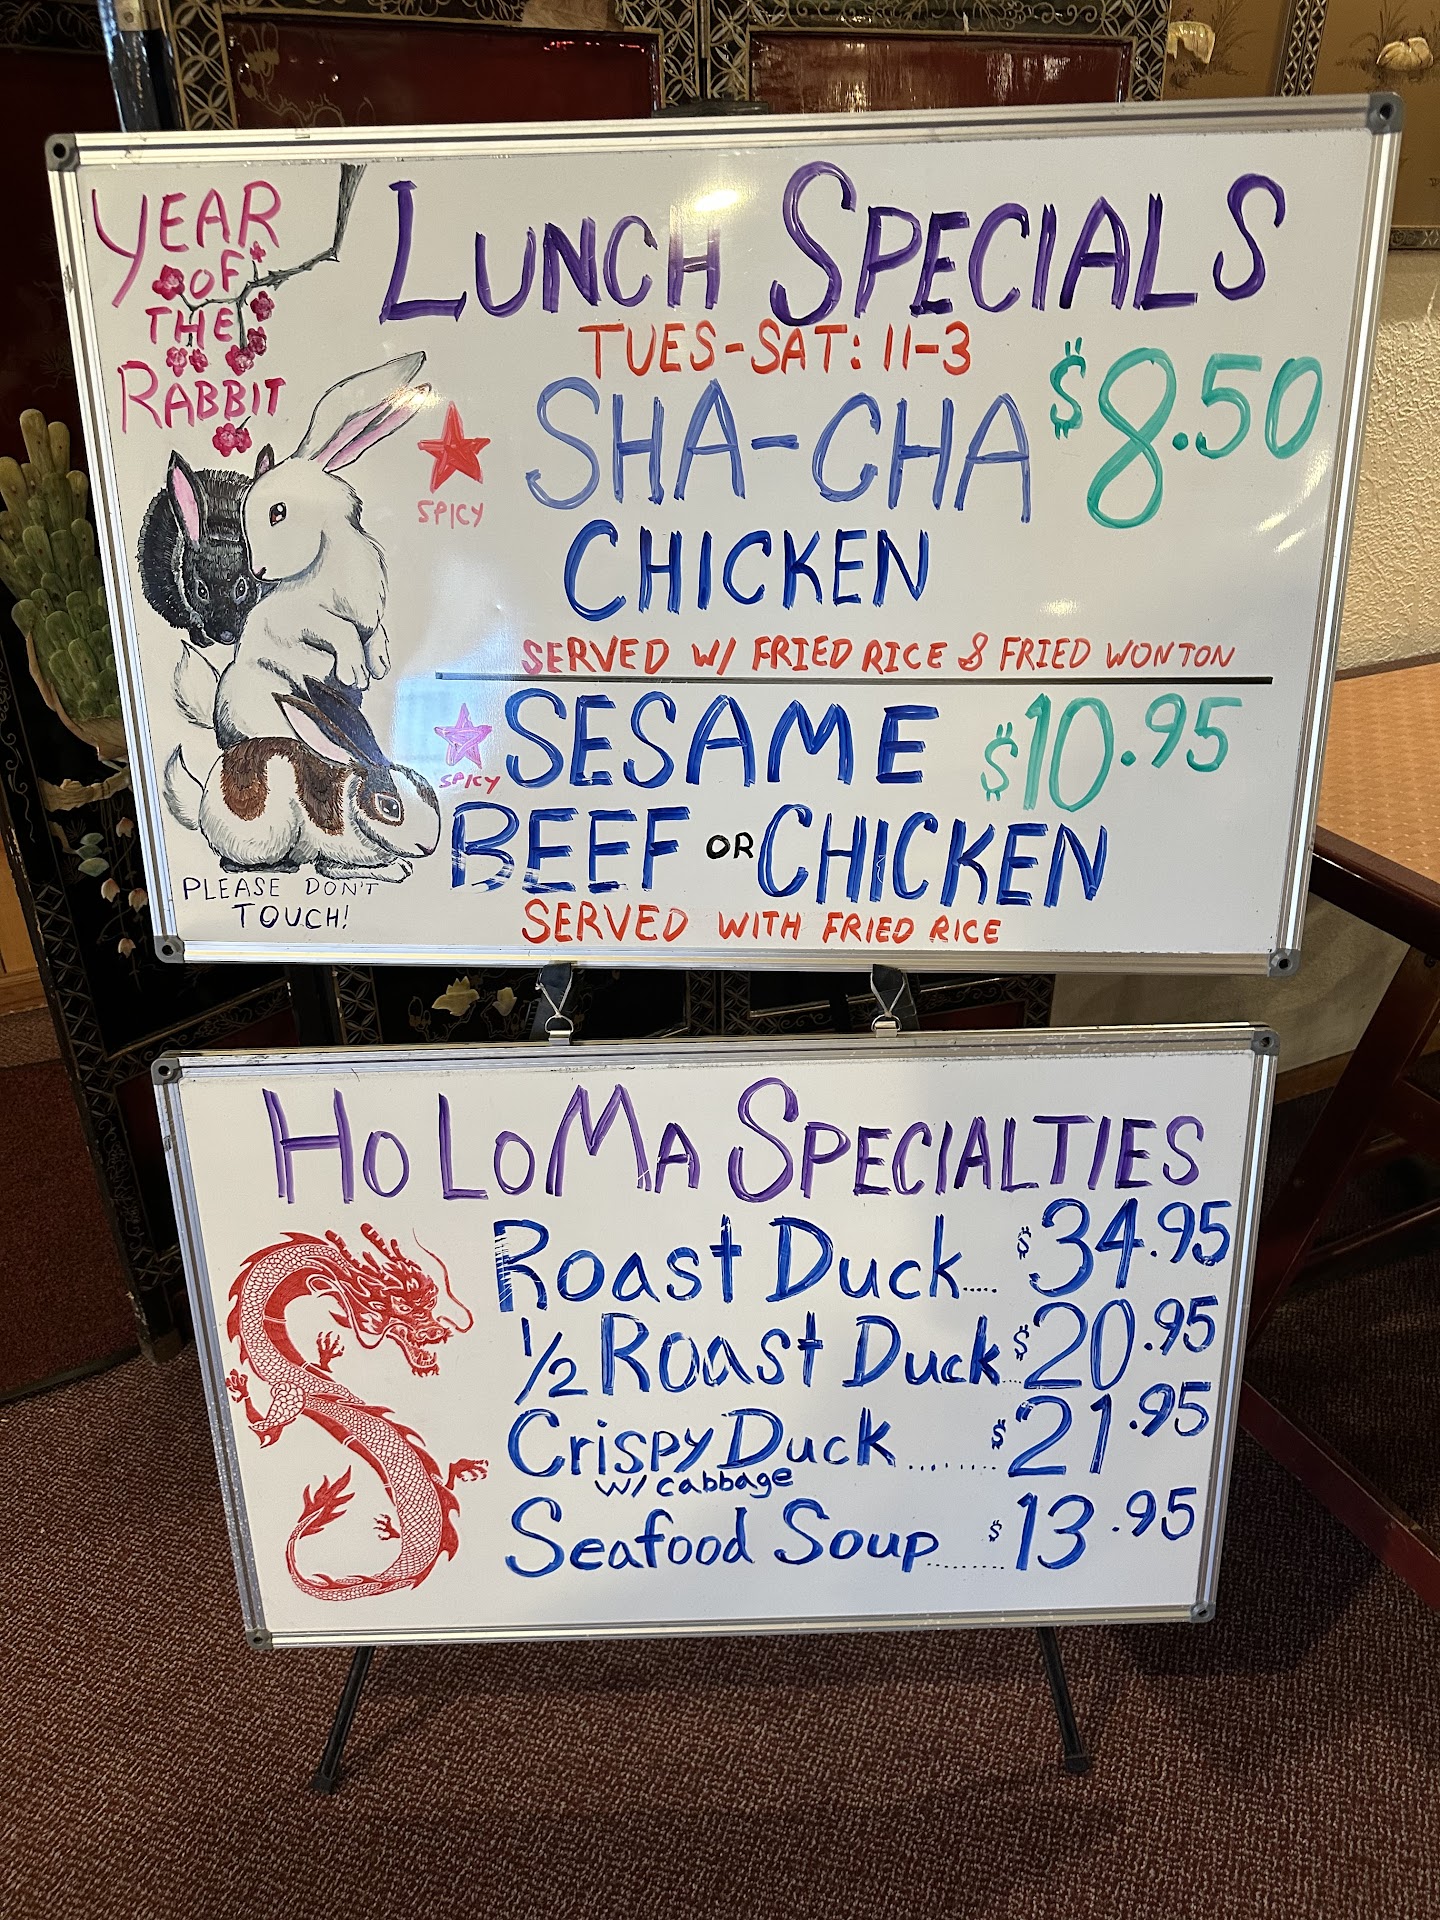 YEAR
OF
THE
RABBIT
LUNCH SPECIALS
TUES-SAT: 11-3
SPICY
SHA-CHA $8.50
CHICKEN
SERVED W/ FRIED RICE & FRIED WONTON
SPICY
SESAME $10.95
BEEF OR CHICKEN
SERVED WITH FRIED RICE
PLEASE DON'T
TOUCH!
HO LOMA SPECIALTIES
Roast Duck.... $34.95
1/2 Roast Duck... $20.95
Crispy Duck........ $21.95
w/ cabbage
Seafood Soup........ $13.95